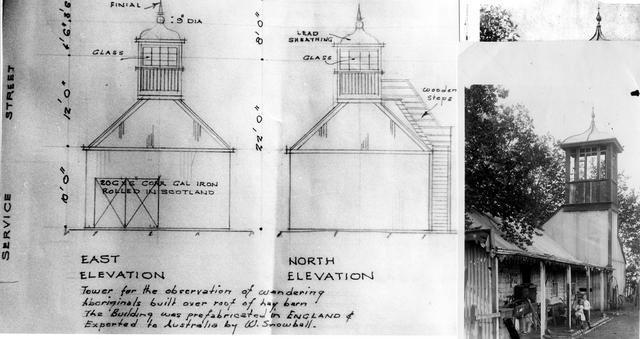 FINIAL
9" DIA
GLASS
SERVICE STREET
12' 0"
10' 0"
8' 0"
22' 0"
20G x 6 CORR GAL IRON
ROLLED IN SCOTLAND
EAST
ELEVATION
LEAD
SHEATHING
GLASS
Wooden
Steps
NORTH
ELEVATION
Tower for the observation of wandering
Aboriginals built over roof of hay barn
The Building was prefabricated in ENGLAND &
Exported to Australia by W. Snowball.